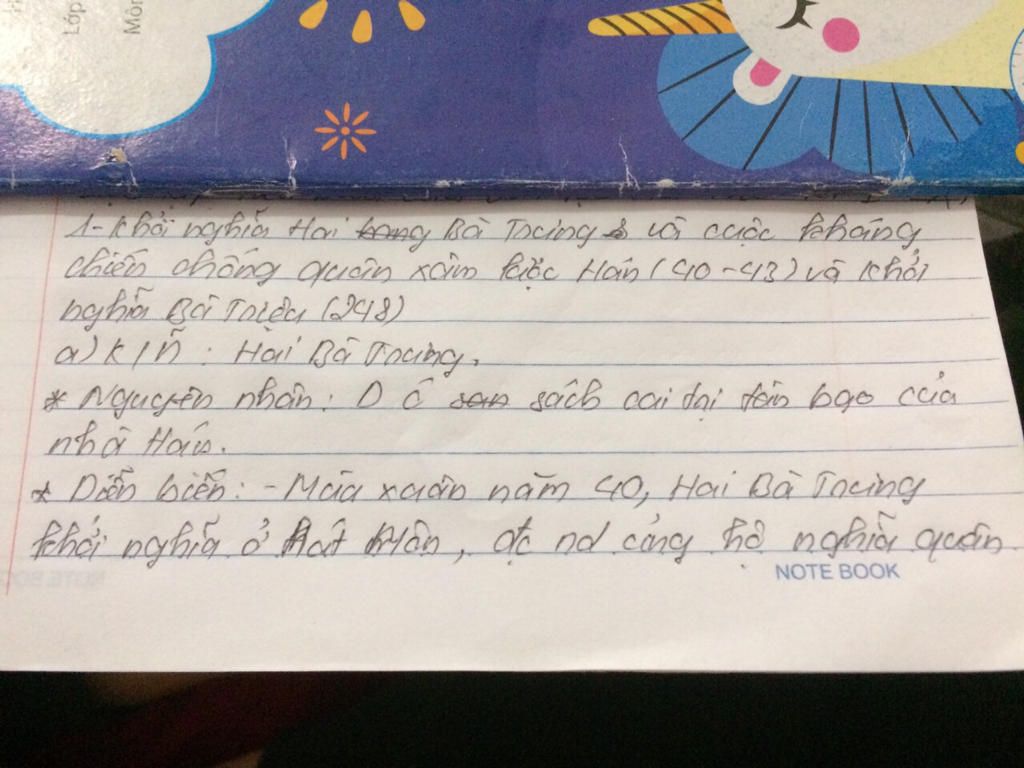 Lớp
Môn
1- Khởi nghĩa Hai Bà Trưng và cuộc kháng
chiến chống quân xâm lược Hán (40-43) và khởi
nghĩa Bà Triệu (248)
a) K/N : Hai Bà Trưng.
* Nguyên nhân: D C sách cai tại tàn bạo của
nhà Hán.
* Diễn biến: - Mùa xuân năm 40, Hai Bà Trưng
khởi nghĩa ở Hát Môn, đc nd ủng hộ nghĩa quân
NOTE BOOK